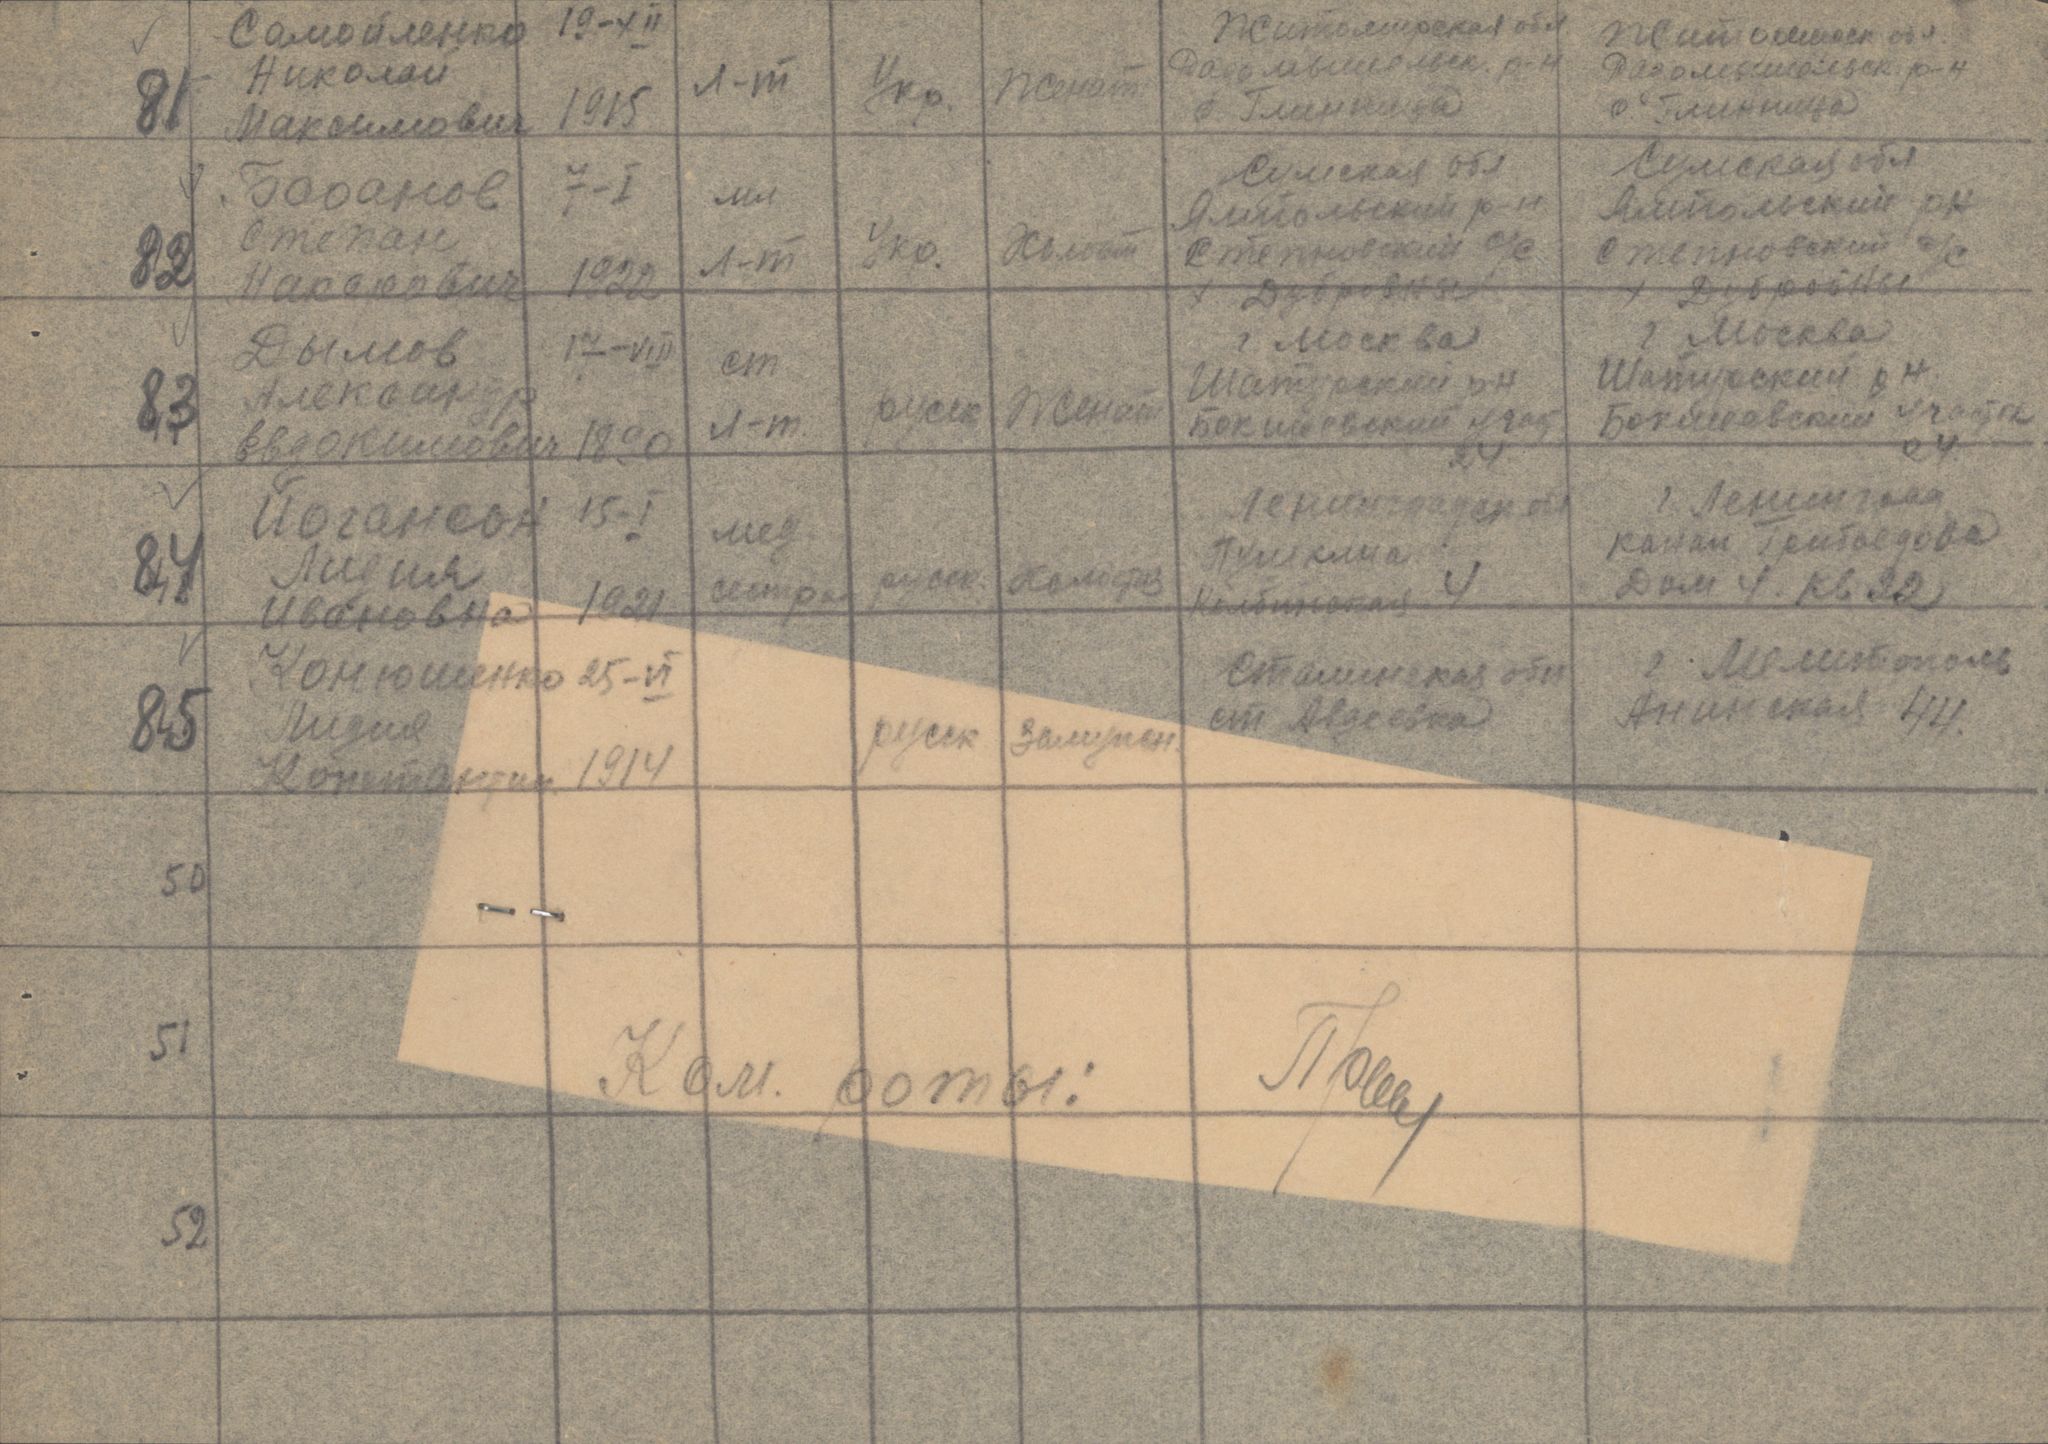 81 Самойленко Николай Максимович 19-XII 1915 Л-т Укр. Женат Житомирская обл Радомышльск. р-н с. Глинница Житомирск обл. Радомышльск. р-н с. Глинница
82 Степан Макарович 7-I 1922 мл Л-т Укр. Холост Сумская обл Ямпольский р-н Степновский с/с х Дубровны Сумская обл Ямпольский р-н Степновский с/с х Дубровны
83 Дымов Александр Евдокимович 17-VIII 1890 ст Л-т. русск Женат г Москва Шатурский р-н 24 г Москва Шатурский р-н участок 24
84 Йогансон Лидия Ивановна 15-I 1921 мед. сестра русск. Холостая Ленинградской 4 г. Ленинград канал Грибоедова Дом 4. кв 22
85 Конюшенко Лидия Константин 25-VI 1914 русск замужн. Сталинская обл ст Авдеевка г. Мелитополь Анинская 44.
50
51 Ком. роты:
52